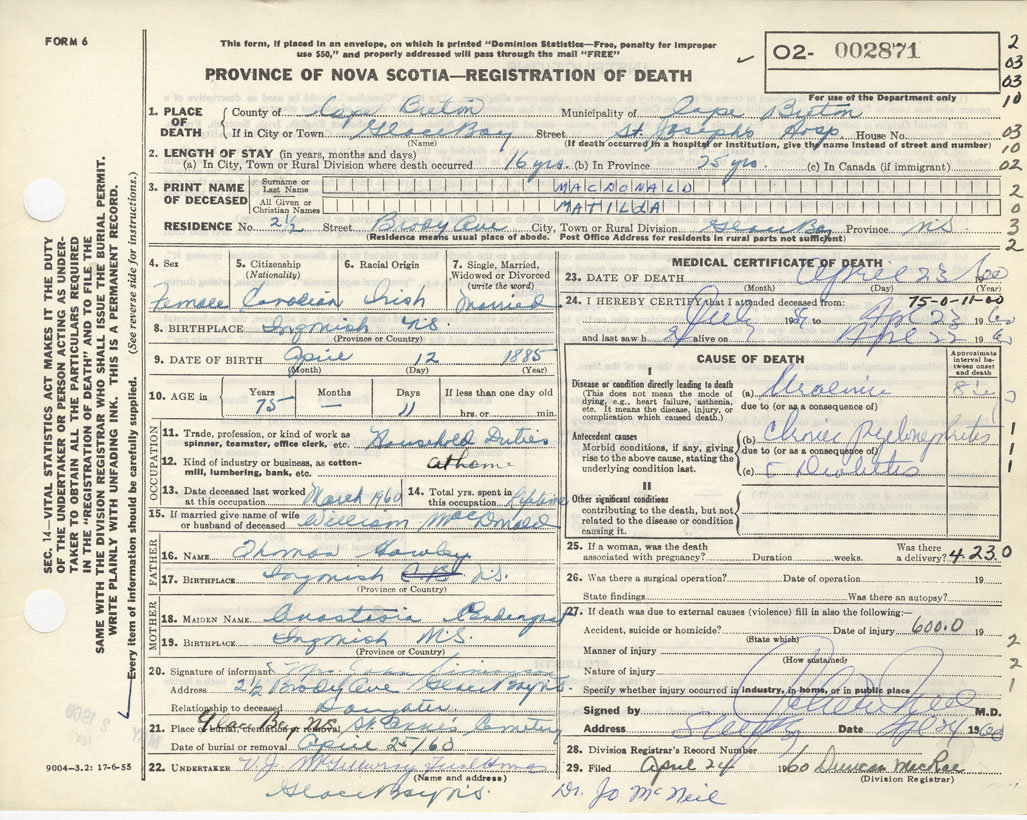 FORM 6
This form, if placed in an envelope, on which is printed "Dominion Statistics—Free, penalty for improper
use $50," and properly addressed will pass through the mail "FREE"
PROVINCE OF NOVA SCOTIA—REGISTRATION OF DEATH
O2- 002871
For use of the Department only
2
03
03
10
03
10
02
2
0
3
2
SEC. 14—VITAL STATISTICS ACT MAKES IT THE DUTY
OF THE UNDERTAKER OR PERSON ACTING AS UNDER-
TAKER TO OBTAIN ALL THE PARTICULARS REQUIRED
IN THE "REGISTRATION OF DEATH" AND TO FILE THE
SAME WITH THE DIVISION REGISTRAR WHO SHALL ISSUE THE BURIAL PERMIT.
WRITE PLAINLY WITH UNFADING INK. THIS IS A PERMANENT RECORD.
Every item of information should be carefully supplied. (See reverse side for instructions.)
1. PLACE OF DEATH County of Cape Breton Municipality of Cape Breton
If in City or Town Glace Bay Street St. Josephs Hosp House No.
(Name) (If death occurred in a hospital or institution, give the name instead of street and number)
2. LENGTH OF STAY (in years, months and days)
(a) In City, Town or Rural Division where death occurred 16 yrs. (b) In Province 75 yrs. (c) In Canada (if immigrant)
3. PRINT NAME OF DECEASED Surname or Last Name MACDONALD
All Given or Christian Names MATILDA
RESIDENCE No. 2½ Street Brody Ave City, Town or Rural Division Glace Bay Province NS
(Residence means usual place of abode. Post Office Address for residents in rural parts not sufficient)
4. Sex 5. Citizenship (Nationality) 6. Racial Origin 7. Single, Married, Widowed or Divorced (write the word)
Female Canadian Irish Married
8. BIRTHPLACE Ingonish N.S.
(Province or Country)
9. DATE OF BIRTH April 12 1885
(Month) (Day) (Year)
10. AGE in Years 75 Months — Days 11 If less than one day hrs. or min.
OCCUPATION
11. Trade, profession, or kind of work as spinner, teamster, office clerk, etc. Household Duties
12. Kind of industry or business, as cotton-mill, lumbering, bank, etc. at home
13. Date deceased last worked at this occupation March 1960 14. Total yrs. spent in this occupation Lifetime
15. If married give name of wife or husband of deceased William MacDonald
FATHER
16. NAME Thomas Hawley
17. BIRTHPLACE Ingonish N.S.
(Province or Country)
MOTHER
18. MAIDEN NAME Anastasia
19. BIRTHPLACE Ingonish N.S.
(Province or Country)
20. Signature of informant Mrs.
Address 2½ Brody Ave Glace Bay N.S.
Relationship to deceased Daughter
21. Place of burial, cremation or removal Glace Bay N.S. St Anne's Cemetery
Date of burial or removal April 25/60
22. UNDERTAKER V.J. McGillivray Funeral Home
(Name and address)
Glace Bay N.S.
9004-3.2: 17-6-55
MEDICAL CERTIFICATE OF DEATH
23. DATE OF DEATH April 23 60
(Month) (Day) (Year)
75-0-11-00
24. I HEREBY CERTIFY that I attended deceased from:
July 19 to Apr 23 1960
and last saw h alive on April 19 60
CAUSE OF DEATH
Approximate interval between onset and death
I
Disease or condition directly leading to death
(This does not mean the mode of
dying, e.g., heart failure, asthenia,
etc. It means the disease, injury, or
complication which caused death.)
(a) Uraemia
due to (or as a consequence of)
Antecedent causes
Morbid conditions, if any, giving
rise to the above cause, stating the
underlying condition last.
(b) Chronic pyelonephritis
due to (or as a consequence of)
(c) Diabetes
II
Other significant conditions
contributing to the death, but not
related to the disease or condition
causing it.
1
1
1
25. If a woman, was the death associated with pregnancy? Duration weeks. Was there a delivery? 4.23.0
26. Was there a surgical operation? Date of operation 19
State findings Was there an autopsy?
27. If death was due to external causes (violence) fill in also the following:—
Accident, suicide or homicide? Date of injury 600.0 19
(State which)
Manner of injury
(How sustained)
Nature of injury
Specify whether injury occurred in industry, in home, or in public place
2
2
1
Signed by M.D.
Address Date Apr 24 1960
28. Division Registrar's Record Number
29. Filed April 24 1960 Duncan MacRae
(Division Registrar)
Dr. Jo McNeil